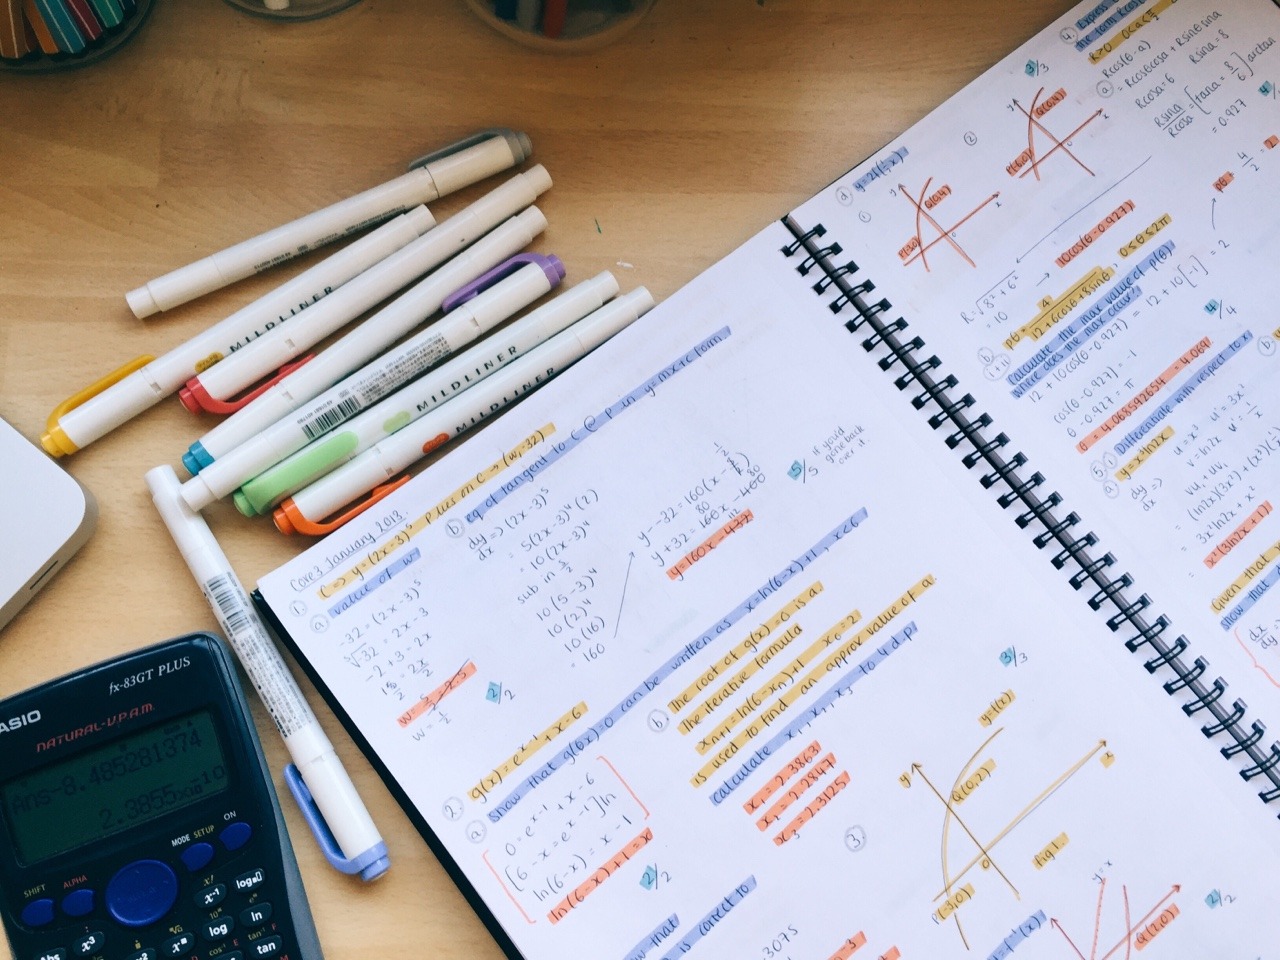 MILDLINER
MILDLINER
MILDLINER
CASIO
fx-83GT PLUS
NATURAL-V.P.A.M.
Ans-8.485281374
2.3855×10⁻¹⁰
MODE SETUP
ON
SHIFT
ALPHA
x!
x⁻¹
log
ln
tan
Abs
x³
Core 3 January 2013.
① C => y = (2x-3)⁵ P lies on C → (w, -32)
ⓐ value of w
-32 = (2x-3)⁵
⁵√32 = 2x-3
-2+3 = 2x
w = 1/2
2/2
ⓑ eq of tangent to C @ P in y=mx+c form.
dy/dx => (2x-3)⁵
= 5(2x-3)⁴(2)
= 10(2x-3)⁴
sub in
10(5-3)⁴
10(2)⁴
10(16)
= 160
y--32 = 160(x-
y+32 = 160x
y=160x-432
5/5 if you'd gone back over it.
2. g(x) = eˣ⁻¹ + x - 6
ⓐ show that g(x)=0 can be written as x=ln(6-x)+1, x<6
0 = eˣ⁻¹ + x - 6
[6-x = eˣ⁻¹] ln
ln(6-x) = x-1
ln(6-x)+1 = x
2/2
ⓑ The root of g(x)=0 is a.
The iterative formula
xₙ₊₁ = ln(6-xₙ)+1 x₀=2
is used to find an approx value of a.
calculate x₁, x₂, x₃ to 4 dp
x₁ = 2.3863
x₂ = 2.2847
x₃ = 2.3125
3/3
is correct to
.3075
③
y=f(x)
y
x
Q(0,2)
0
P(-3,0)
fig 1.
y=x
2/2
ⓓ y=2f(½x)
①
y
x
Q(0,4)
②
Q(0,4)
x
3/3
4. Express
the form Rcos(
R>0
ⓐ Rcos(θ-a)
= Rcosθcosa + Rsinθsina
Rcosa=6 Rsina=8
Rsina/Rcosa = [tana = 8/6] arctan
= 0.927
R=√8²+6²
= 10
→ 10cos(θ-0.927)
ⓑ pθ = 4/12+6cosθ+8sinθ, 0≤θ≤2π
Calculate the max value of p(θ)
where does the max occur?
12+10cos(θ-0.927) = 12+10[-1] = 2
cos(θ-0.927) = -1
θ-0.927 = π
θ = 4.068592654 = 4.069
pθ = 4/2 = 2
4/4
5. Differentiate with respect to x
ⓐ y = x³ln2x
dy/dx =>
u=x³ u'=3x²
v=ln2x v'=1/x
vu'+uv'
(ln2x)(3x²)+(x³)(
3x²ln2x+x²
x²(3ln2x+1)
Given that
show that